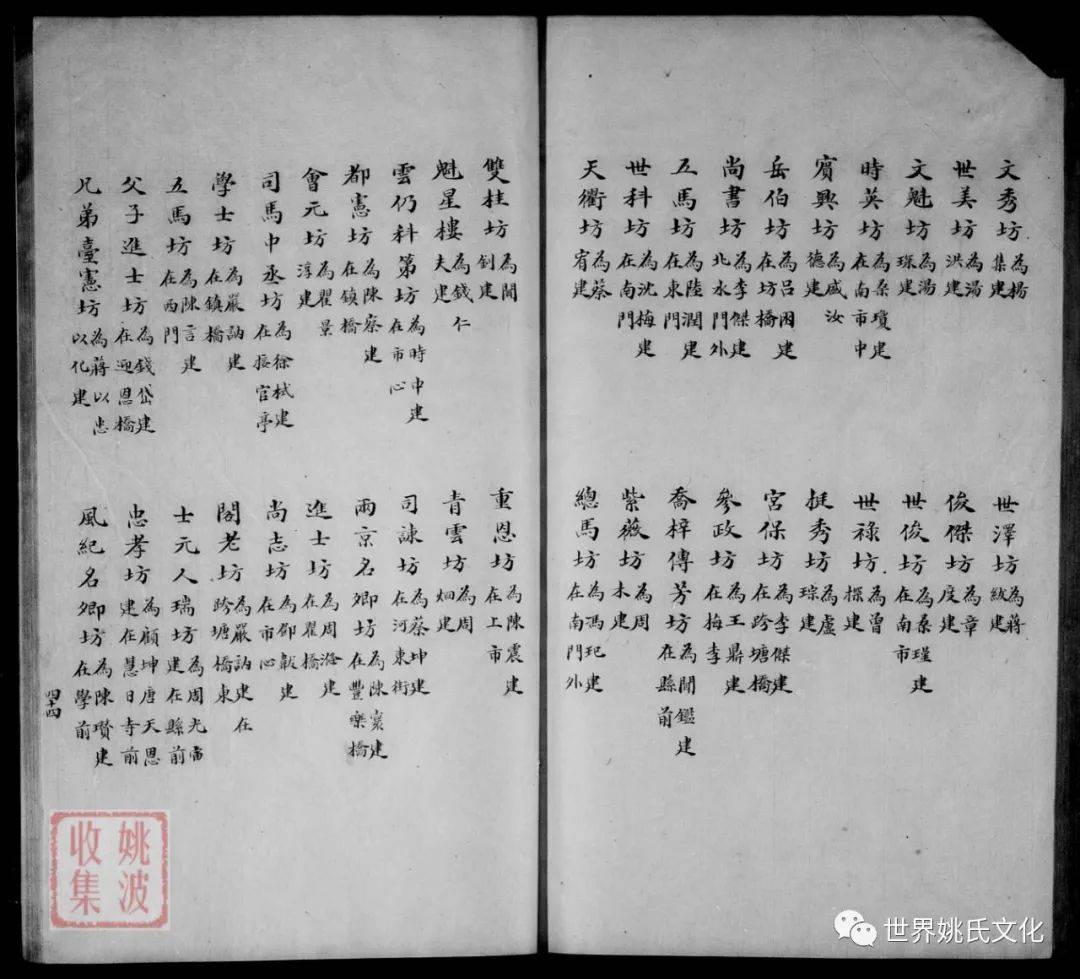 文秀坊為楊集建
世美坊為湯洪建
文魁坊為湯琛建
時英坊為桑瓊建在南市中
賓興坊為戚汝德建
岳伯坊為呂囦建在坊橋
尚書坊為李傑建北水門外
五馬坊為陸潤建在東門
世科坊為沈梅建在南門
天衢坊為蔡宥建
世澤坊為蔣紱建
俊傑坊為章度建
世俊坊為桑瑾建在南市
世祿坊為曾探建
挺秀坊為盧琮建
宮保坊為李傑建在跨塘橋
參政坊為王鼎建在梅李
喬梓傳芳坊為聞鑑建在縣前
紫薇坊為周木建
總馬坊為馮玘建在南門外
雙桂坊為聞釗建
魁星樓為錢仁夫建
雲仍科第坊為時中建在市心
都憲坊為陳察建在鎮橋
會元坊為瞿景淳建
司馬中丞坊為徐栻建在接官亭
學士坊為嚴訥建在鎮橋
五馬坊為陳言建在西門
父子進士坊為錢岱建在迎恩橋
兄弟臺憲坊為蔣以忠以化建
重恩坊為陳震建在上市
青雲坊為周炯建
司諫坊為蔡坤建在河東街
兩京名卿坊為陳寰建在豐樂橋
進士坊為周滃建在瞿橋
尚志坊為鄒韍建在市心
閣老坊為嚴訥建在跨塘橋東
士元人瑞坊為周光宙建在縣前
忠孝坊為顧坤唐天恩建在慧日寺前
風紀名卿坊為陳瓚建在學前
四十四
姚波收集
世界姚氏文化